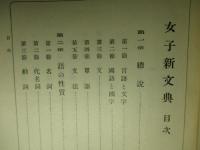 女子新文典 目次
第一章 總說
第一節 言語と文字
第二節 國語と國字
第三節 文
第四節 單語
第五節 文法
第二章 語の性質
第一節 名詞
第二節 代名詞
第三節 動詞
目次